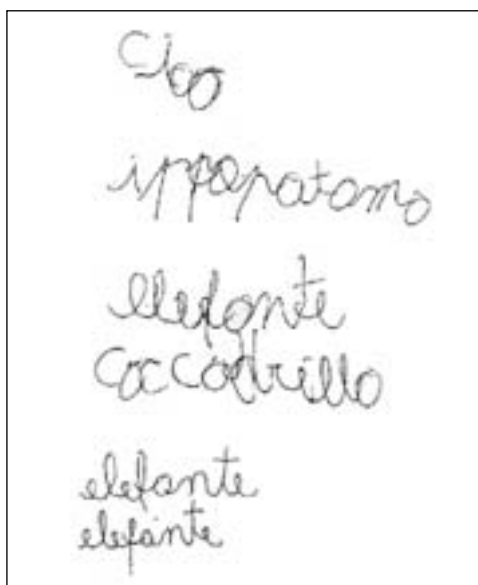 ciao
ippopatamo
elefante
coccodrillo
elefante
elefante